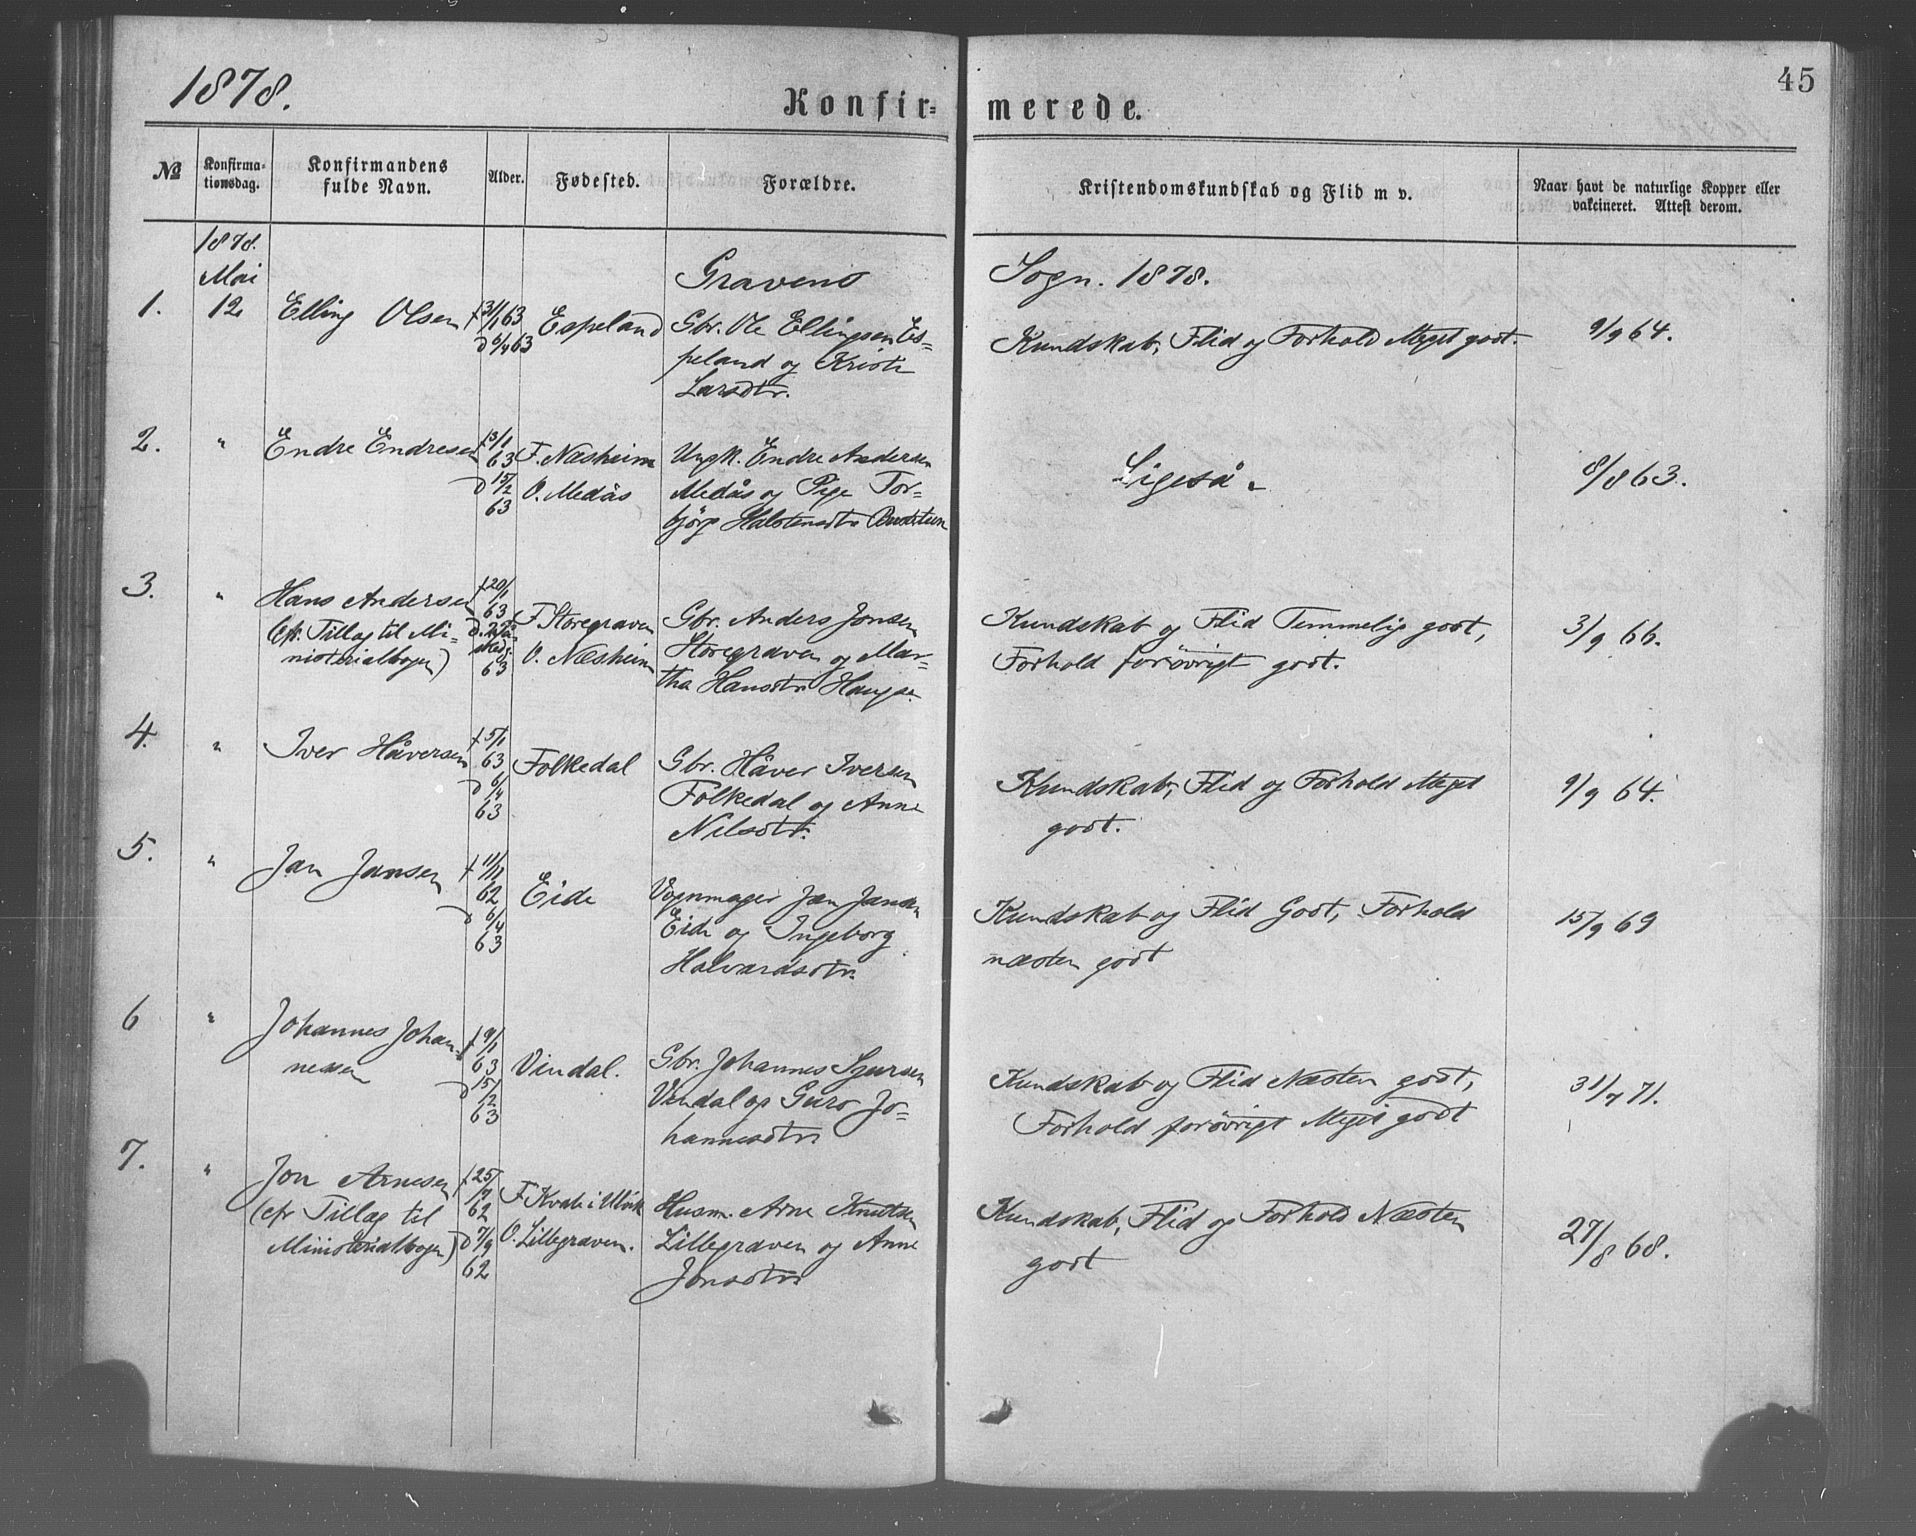 1878.
Konfir-
merede.
45
№
Konfirma-
tionsdag.
Konfirmandens
fulde Navn.
Alder.
Fødested.
Forældre.
Kristendomskundskab og Flid m v.
Naar havt de naturlige Kopper eller
vakcineret. Attest derom.
1878.
Mai
Gravens
Sogn. 1878.
1.
12
Elling Olsen
f 31/1 63
d 6/4 63
Espeland
Gbr. Ole Ellingsen Es-
peland og Kristi
Larsdtr.
Kundskab, Flid og Forhold Meget godt.
9/9 64.
2.
"
Endre Endresen
f 3/1
63
d 15/2
63
F. Næsheim
O. Medås
Ungk. Endre Andersen
Medås og Pige Tor-
björg Halstensdtr
Ligeså.
8/8 63.
3.
"
Hans Andersen
(cfr. Tillæg til Mi-
nisterialbogen)
f 20/1
63
63
F. Storegraven
O. Næsheim
Gbr. Anders Jonsen
Storegraven og Mar-
tha Hansdtr Hauge.
Kundskab og Flid Temmelig godt,
Forhold forøvrigt godt.
3/9 66.
4.
"
Iver Håversen
f 5/1
63
d 6/4
63
Folkedal
Gbr. Håver Iversen
Folkedal og Anne
Nilsdtr.
Kundskab, Flid og Forhold Meget
godt.
9/9 64.
5.
"
Jan Jansen
f 11/11
62
d 6/4
63
Eide
Vognmager Jan Jansen
Eide og Ingeborg
Halvardsdtr.
Kundskab og Flid Godt, Forhold
næsten godt
15/9 69
6
"
Johannes Johan-
nessen
f 9/1
63
d 15/2
63
Vindal.
Gbr. Johannes Sjursen
Vindal og Guro Jo-
hannesdtr.
Kundskab og Flid Næsten godt,
Forhold forøvrigt Meget godt
31/7 71.
7.
"
Jon Arnesen
(cfr Tillæg til
Ministerialbogen)
f 25/7
62
d 7/9
62
F. Kvale i Ulvik
O. Lillegraven.
Husm. Arne Knutsen
Lillegraven og Anne
Jonsdtr.
Kundskab, Flid og Forhold Næsten
godt
27/8 68.